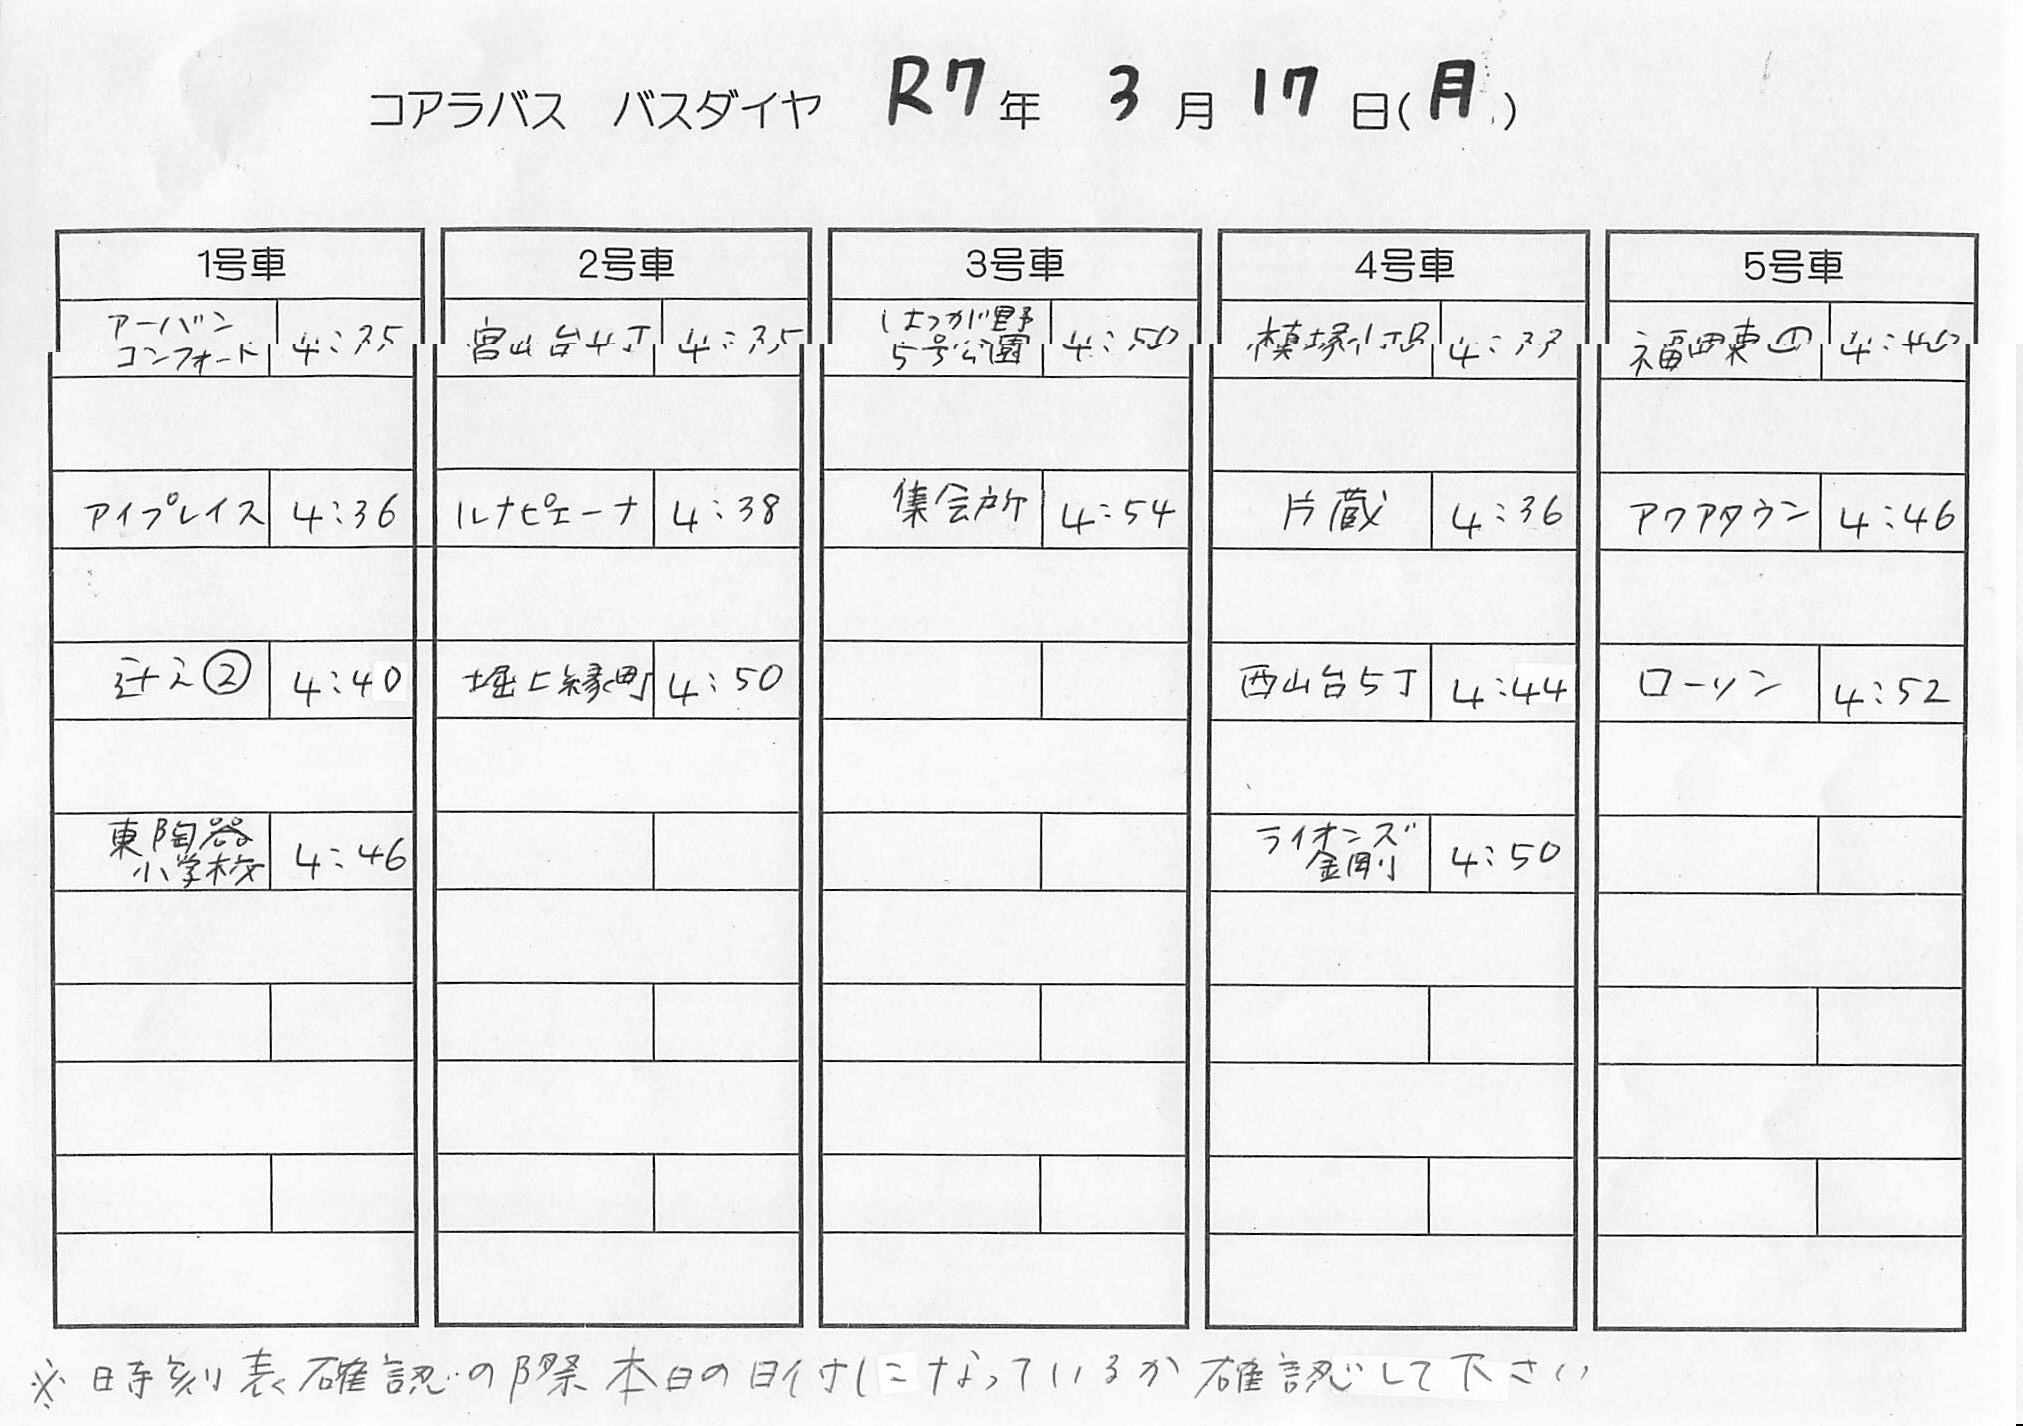 コアラバス バスダイヤ R7年 3月17日(月)
1号車 2号車 3号車 4号車 5号車
アーバン
コンフォート 4:35 宮山台4丁 4:35 はつが野
5号公園 4:50 槙塚 4:33 福田東① 4:40
アイプレイス 4:36 ルナピエーナ 4:38 集会所 4:54 片蔵 4:36 アクアタウン 4:46
辻之② 4:40 堀上緑町 4:50 西山台5丁 4:44 ローソン 4:52
東陶器
小学校 4:46 ライオンズ
金剛 4:50
※時刻表確認の際本日の日付けになっているか確認して下さい